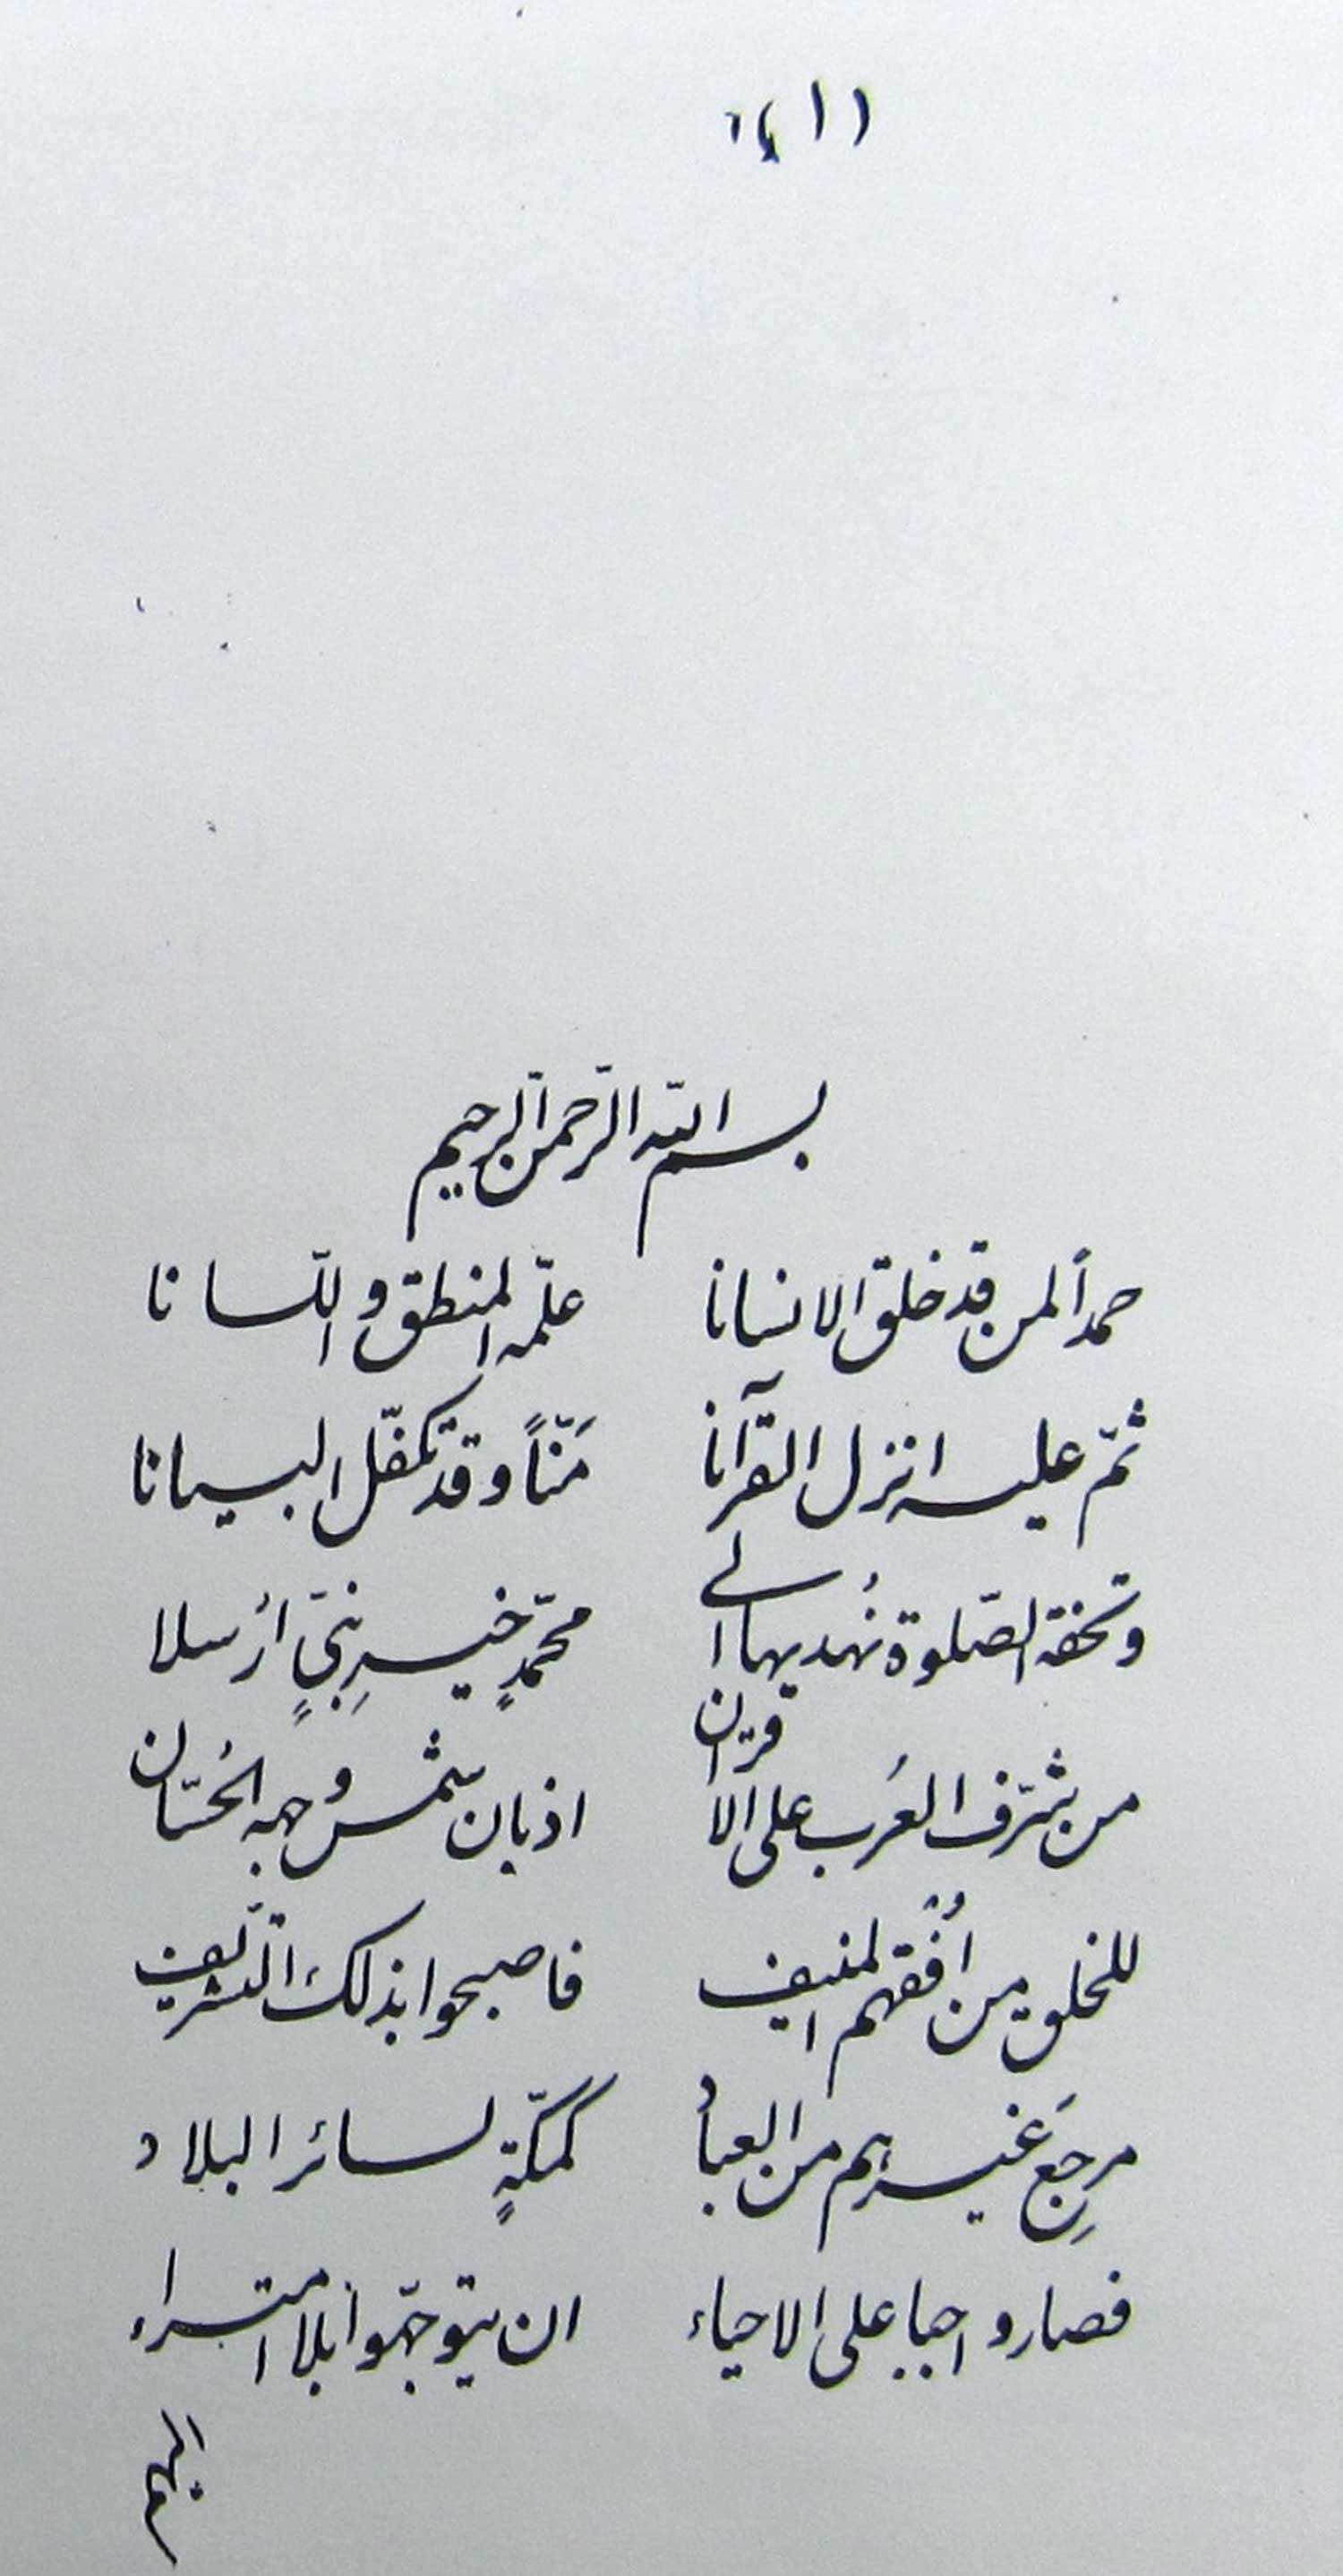 بسم الله الرّحمن الرّحيم
حمداً لمن قد خلق الانسانا علّمه المنطق و اللّسانا
ثمّ عليه انزل القرآنا مَنّاً و قد تكفّل البيانا
و تحفة الصّلوة نُهديها الى محمّدٍ خيرِ نبيٍّ اُرسلا
من شرّف العُرب على الاقران اذ بان شمس وجهه الحُسّان
للخلق من اُفُقهم المنيف فاصبحوا بذلك التّشريف
مرجَعِ غيرهم من العباد كمكّةٍ لسائر البلاد
فصار واجبا على الاحياء ان يتوجّهوا بلا امتراء
اليهم